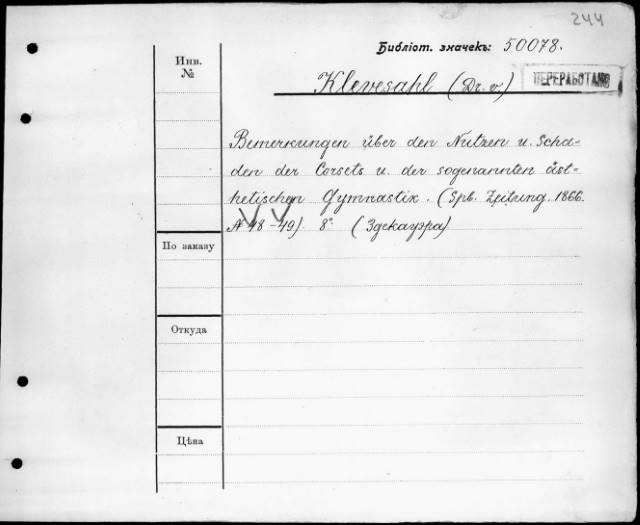 244
Библіот. значекъ: 50078.
Инв.
№
Klevesahl (Dr. v.)
ПЕРЕРАБОТАНО
Bemerkungen über den Nutzen u. Scha-
den der Corsets u. der sogenannten äst-
hetischen Gymnastik. (Spb. Zeitung. 1866.
№ 48-49). 8° (Здекауэра)
По заказу
Откуда
Цѣна